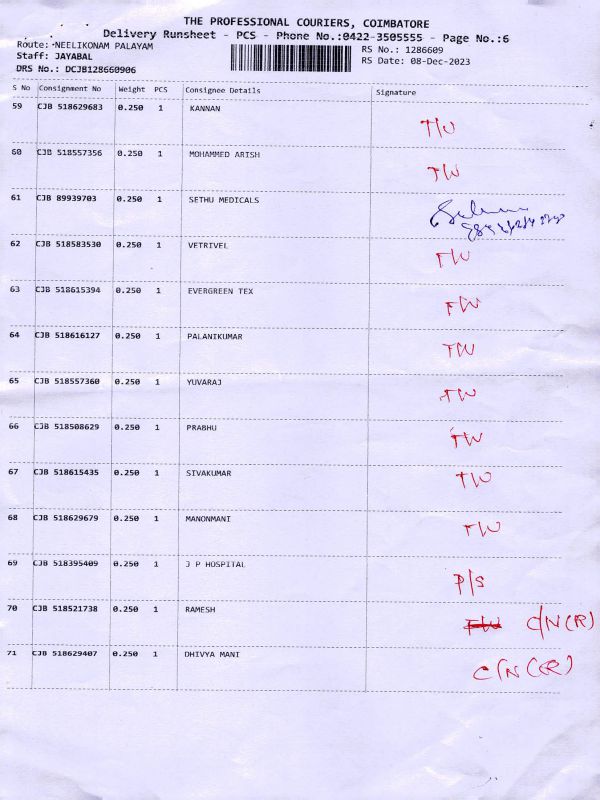 THE PROFESSIONAL COURIERS, COIMBATORE
Delivery Runsheet - PCS - Phone No.:0422-3505555 - Page No.:6
Route: NEELIKONAM PALAYAM
RS No.: 1286609
Staff: JAYABAL
RS Date: 08-Dec-2023
DRS No.: DCJB128660906
S No Consignment No Weight PCS Consignee Details Signature
59 CJB 518629683 0.250 1 KANNAN T/W
60 CJB 518557356 0.250 1 MOHAMMED ARISH T/W
61 CJB 89939703 0.250 1 SETHU MEDICALS
62 CJB 518583530 0.250 1 VETRIVEL T/W
63 CJB 518615394 0.250 1 EVERGREEN TEX T/W
64 CJB 518616127 0.250 1 PALANIKUMAR T/W
65 CJB 518557360 0.250 1 YUVARAJ T/W
66 CJB 518508629 0.250 1 PRABHU T/W
67 CJB 518615435 0.250 1 SIVAKUMAR T/W
68 CJB 518629679 0.250 1 MANONMANI T/W
69 CJB 518395409 0.250 1 J P HOSPITAL P/S
70 CJB 518521738 0.250 1 RAMESH T/W C/N(R)
71 CJB 518629407 0.250 1 DHIVYA MANI C/N(R)